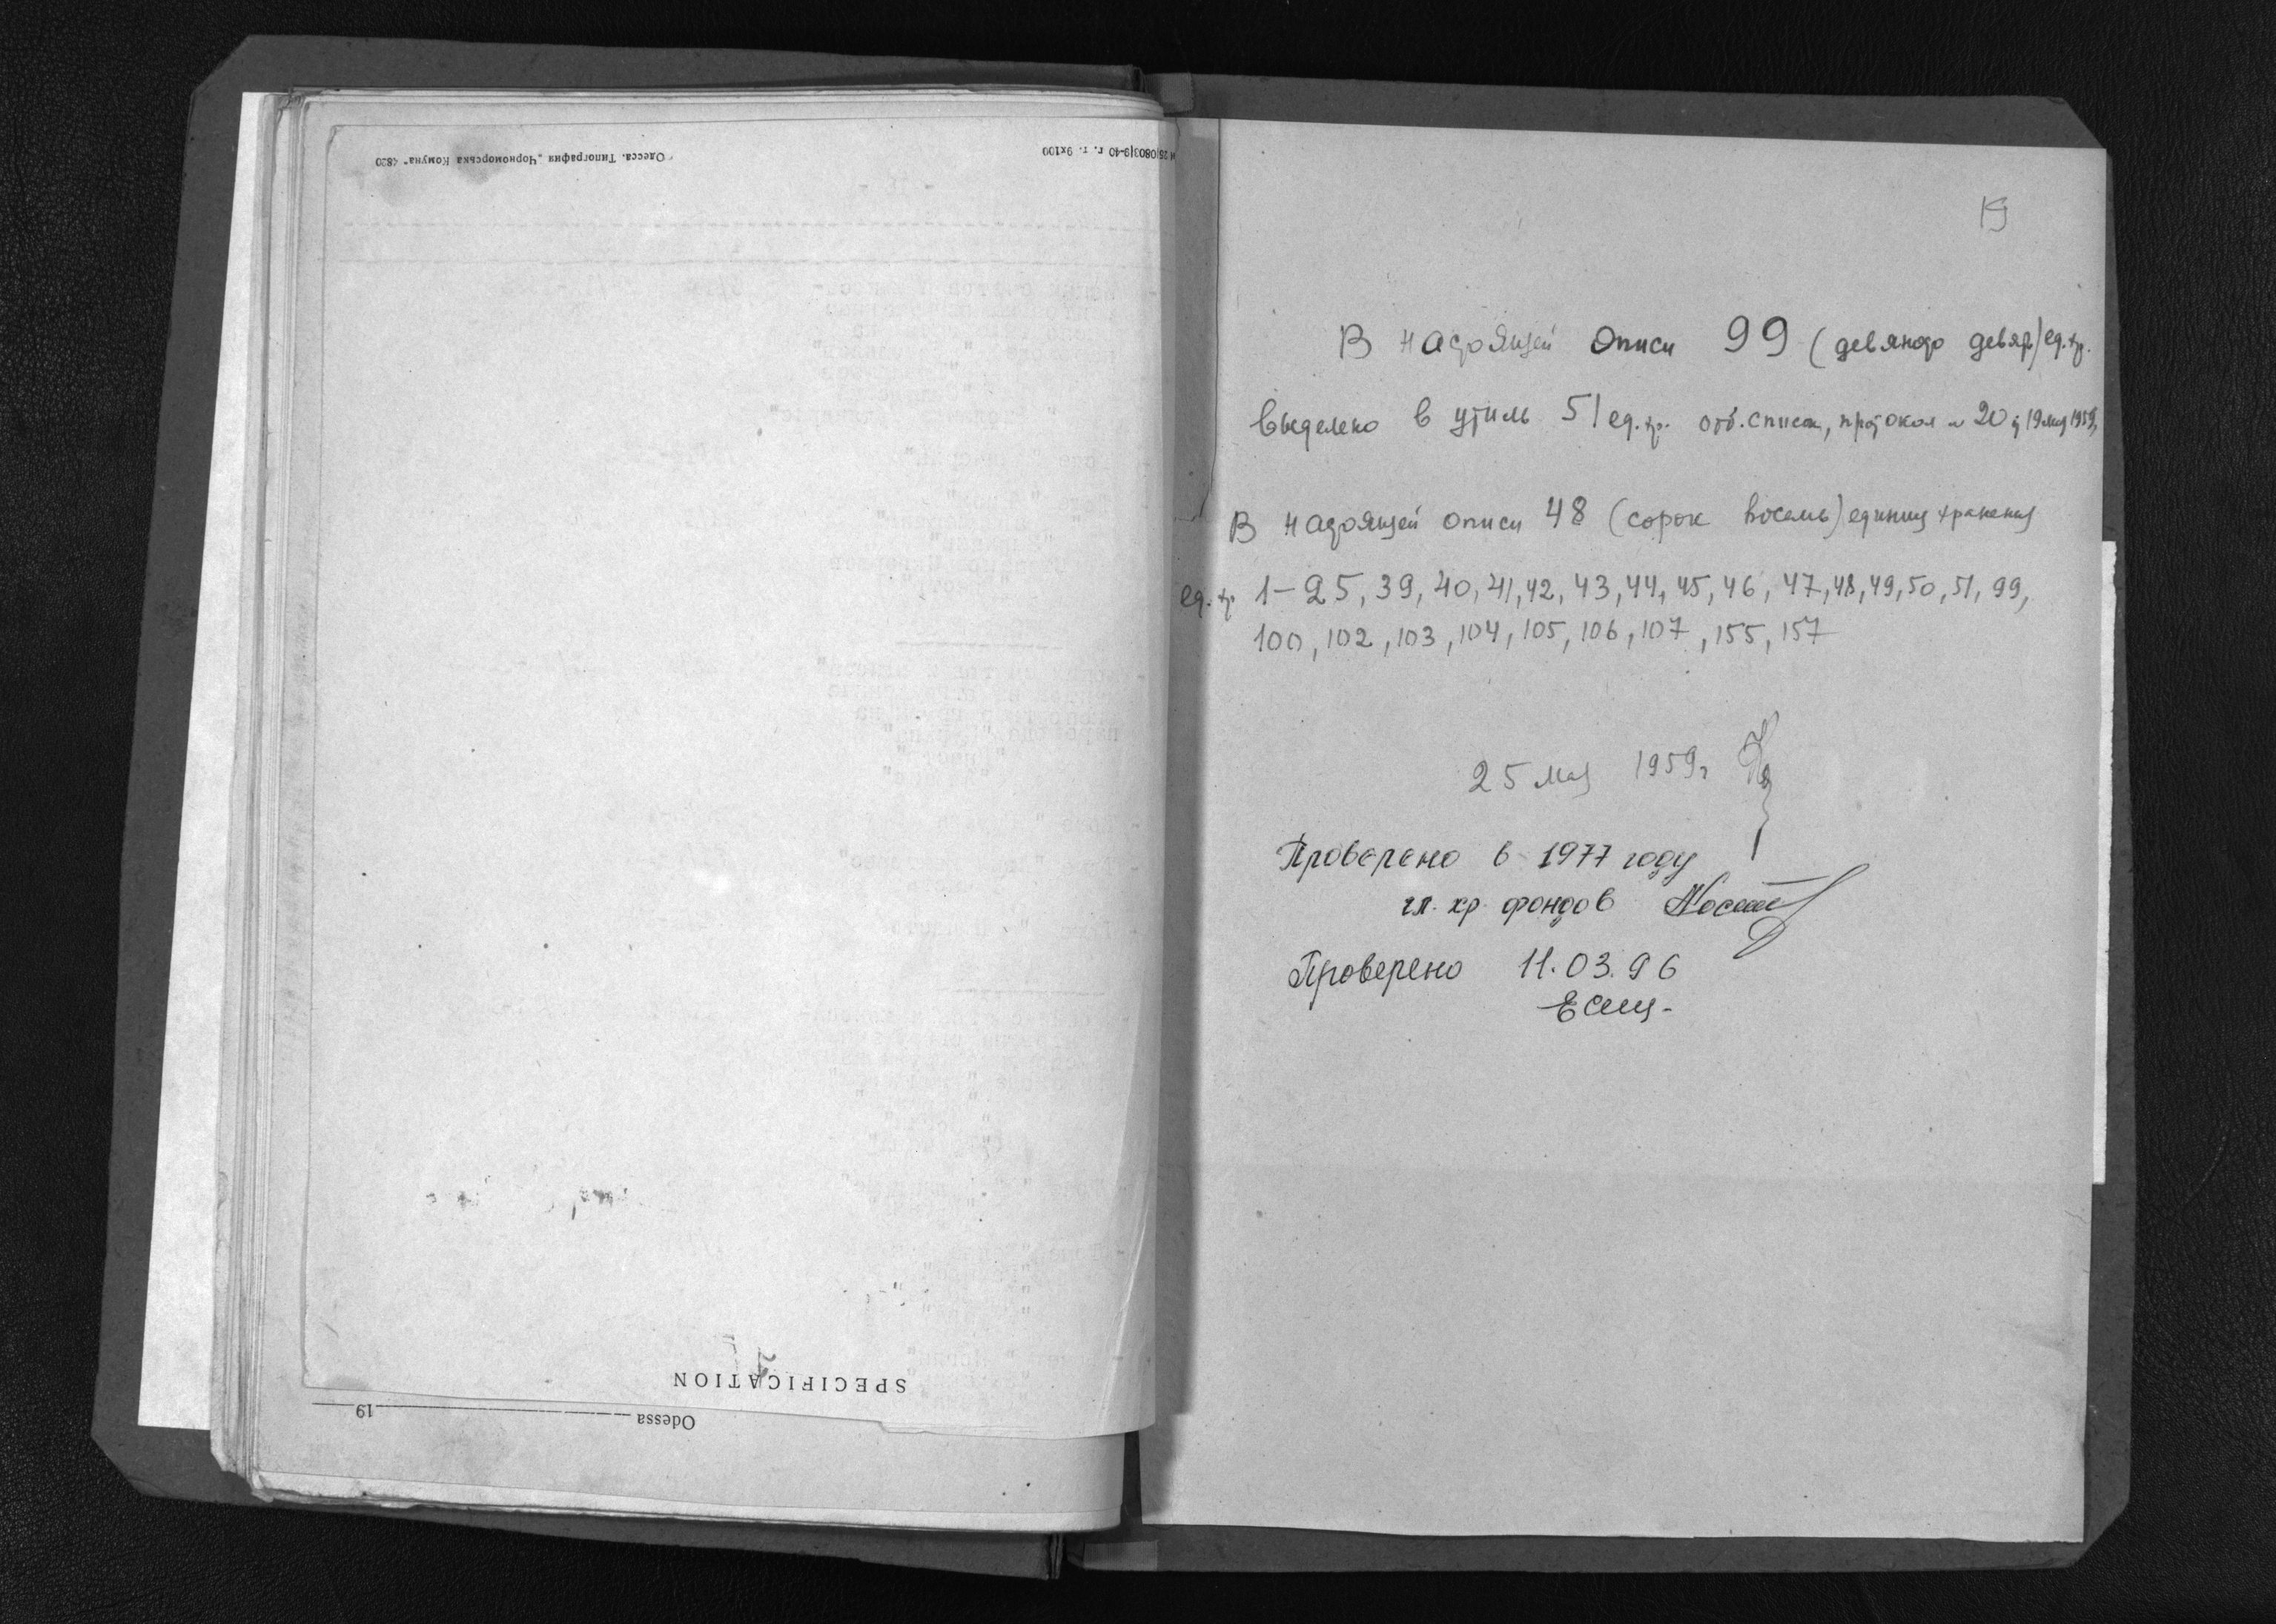 Одесса. Типография „Чорноморська Комуна“ 4820
г. т. 9x100
SPECIFICATION
Odessa 19
19
В настоящей описи 99 (девяносто девять) ед. хр.
Выделено в утиль 51 ед. хр. отб. список, протокол № 20 от 19 мая 1959
В настоящей описи 48 (сорок восемь) единиц хранения
ед. хр. 1-25, 39, 40, 41, 42, 43, 44, 45, 46, 47, 48, 49, 50, 51, 99,
100, 102, 103, 104, 105, 106, 107, 155, 157
25 мая 1959 г
Проверено в 1977 году
гл. хр. фондов
Проверено 11.03.96